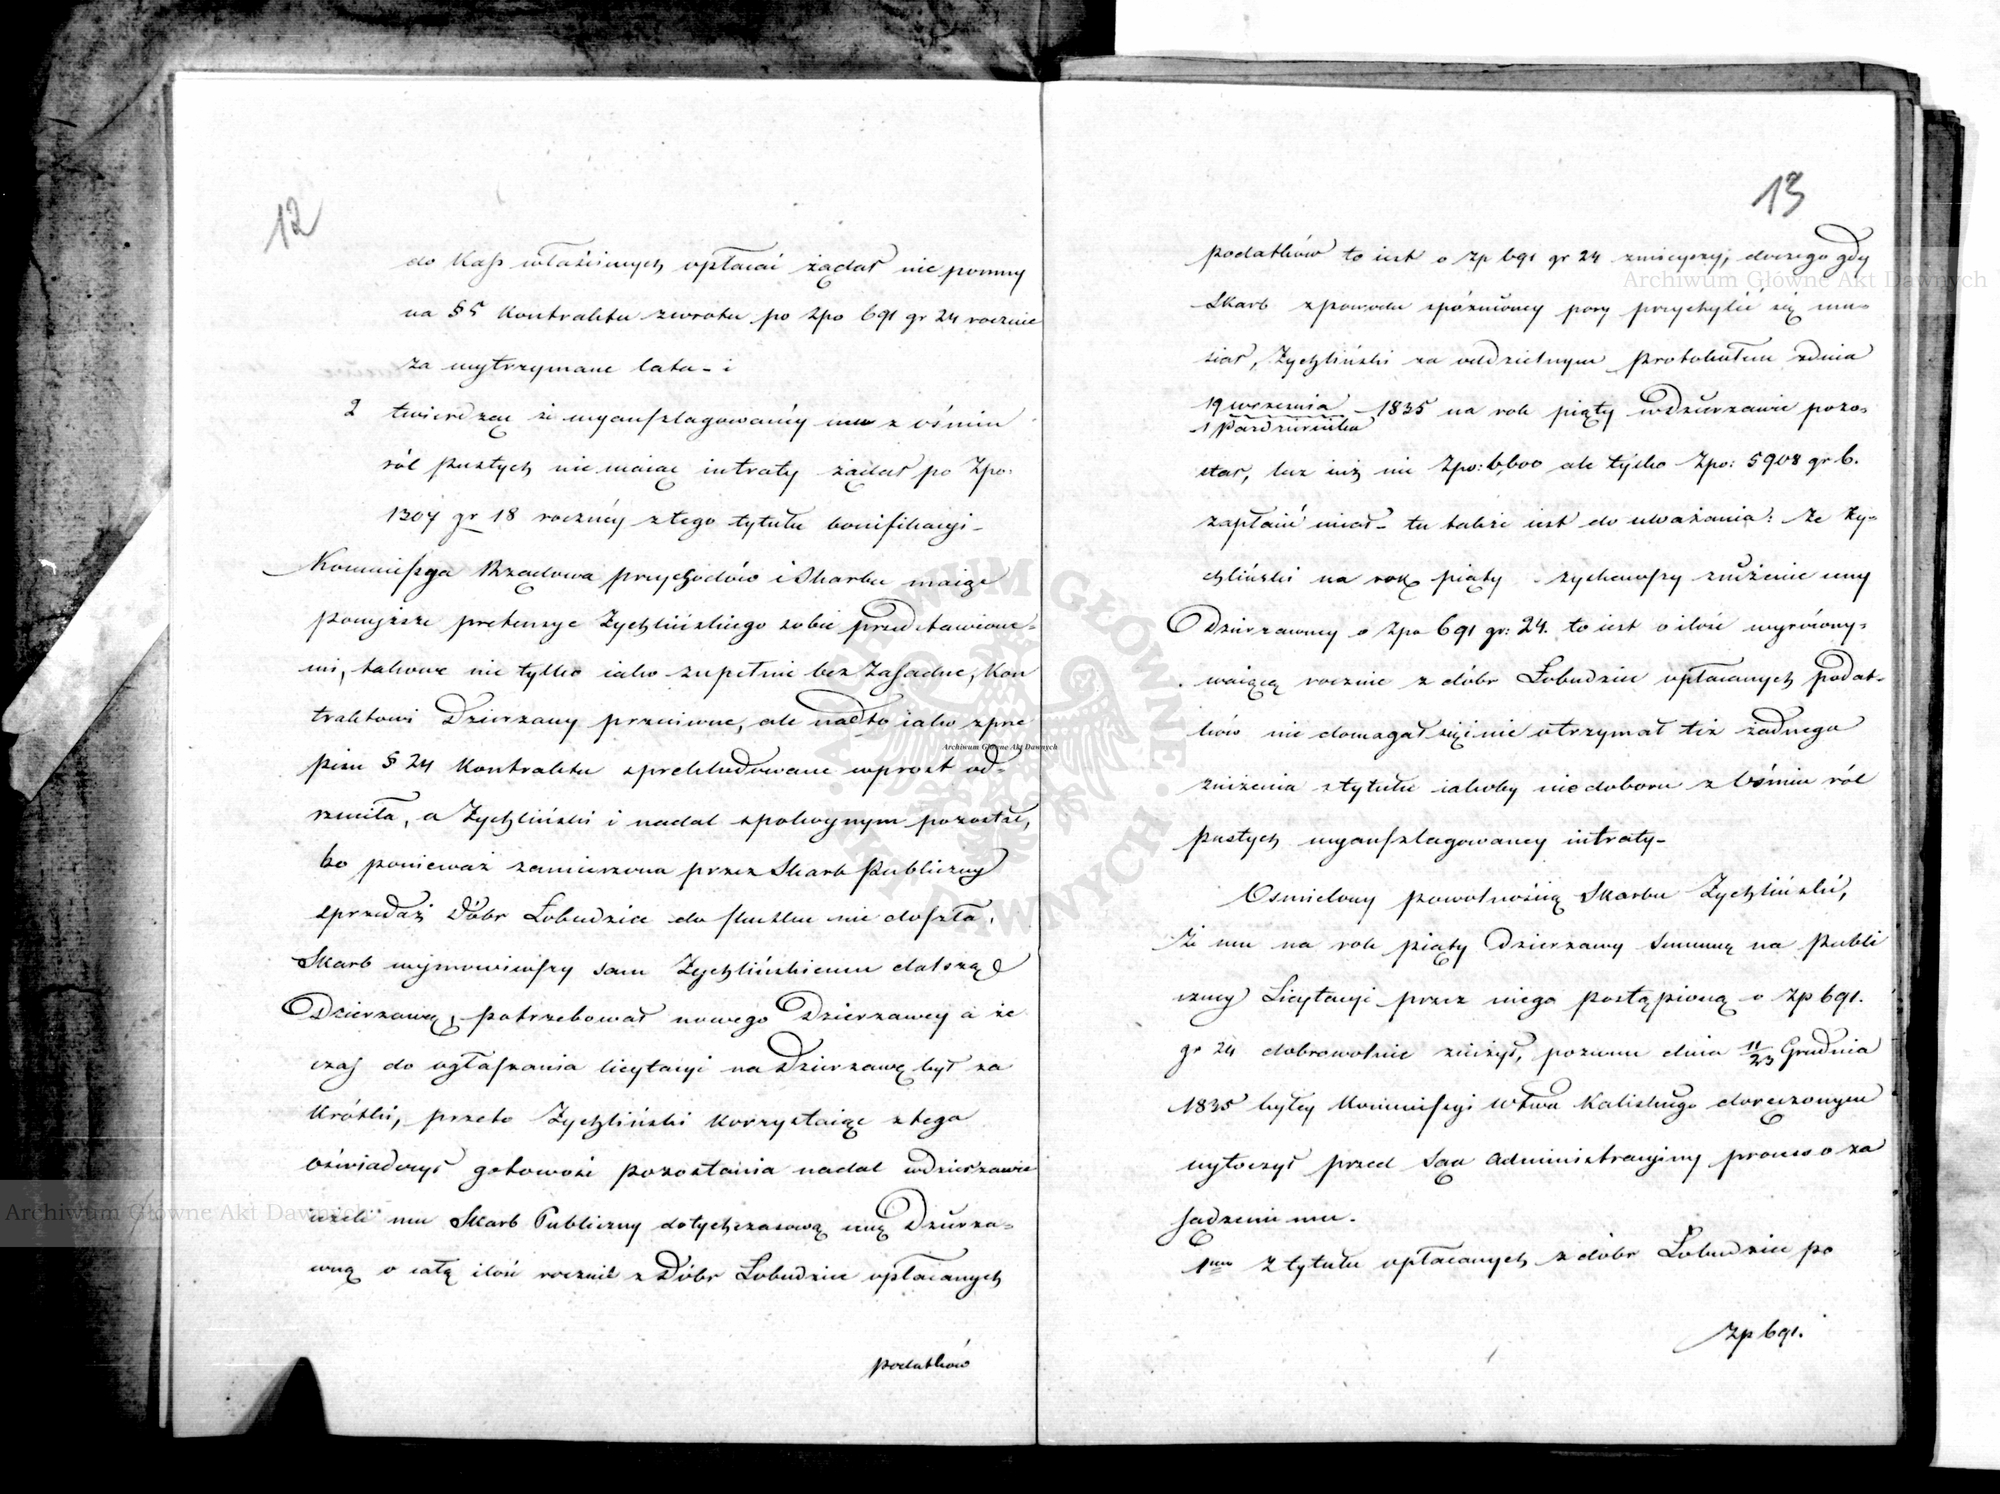 12
do Kass właściwych opłacać żądał nie pomny
na § 5 Kontraktu zwrotu po Zpo 691 gr 24 rocznie
za wytrzymane lata - i
2 twierdząc że wyanszlagowanéy mu z ośmiu
ról pustych nie maiąc intraty żądał po Zpo:
1307 gr 18 rocznéy z tego tytułu bonifikacyi -
Kommissya Rządowa przychodów i Skarbu maiąc
powyższe pretensye Zychlińskiego sobie przedstawione-
mi, takowe nie tylko iako zupełnie bez zasadne, Kon
traktowi Dzierzawy przeciwne, ale nadto iako z prze
pisu § 24 Kontraktu sprekludowane wprost od-
rzuciła, a Zychliński i nadal spokoynym pozostał,
bo ponieważ zamierzona przez Skarb Publiczny
sprzedaż Dóbr Łobudzice do skutku nie doszła,
Skarb wymówiwszy sam Zychlińskiemu dalszą
Dzierzawę, potrzebował nowego Dzierzawcy a że
czas do ogłaszania licytacyi na Dzierzawę był za
Krótki, przeto Zychliński Korzystaiąc z tego
oświadczył gotowość pozostania nadal w dzierzawie
ieżeli mu Skarb Publiczny dotychczasową cenę Dzierza-
wną o całą ilość rocznie z Dóbr Łobudzice opłacanych
podatków
13
podatków to iest o Zp 691 gr 24 zmieyszy, do czego gdy
Skarb z powodu spóźnioney pory przychylić się mu-
siał, Zychliński za oddzielnym Protokułem z dnia
19 września
1 Pazdziernika - 1835 na rok piąty w dzierzawie pozo-
stał, lecz iuż nie Zpo: 6,600 ale tylko Zpo: 5908 gr 6.
zapłacić miał - tu także iest do uważania: że Zy-
chliński na rok piąty zyskawszy zniżenie ceny
Dzierzawney o Zpo 691 gr: 24. to iest o ilość wyrówny-
waiącą rocznie z dóbr Łobudzice opłacanych podat-
ków nie domagał się i nie otrzymał też żadnego
zniżenia z tytułu iakoby niedoboru z Ośmiu ról
pustych wyanszlagowaney intraty -
Osmielony powolnością Skarbu Zychliński,
Że mu na rok piąty Dzierzawy Summę na Publi
czney Licytacyi przez niego postąpioną o Zp 691.
gr 24 dobrowolnie zniżył, pozwem dnia 11/23 Grudnia
1835 byłey Kommissyi Wtwa Kaliskiego doręczonym
wytoczył przed Sąd Administracyiny proces o za
sądzenie mu.
1mo Z tytułu opłacanych z dóbr Łobudzice po
Zp 691.
Archiwum Główne Akt Dawnych
Archiwum Główne Akt Dawnych
Archiwum Główne Akt Dawnych
ARCHIWUM GŁÓWNE AKT DAWNYCH